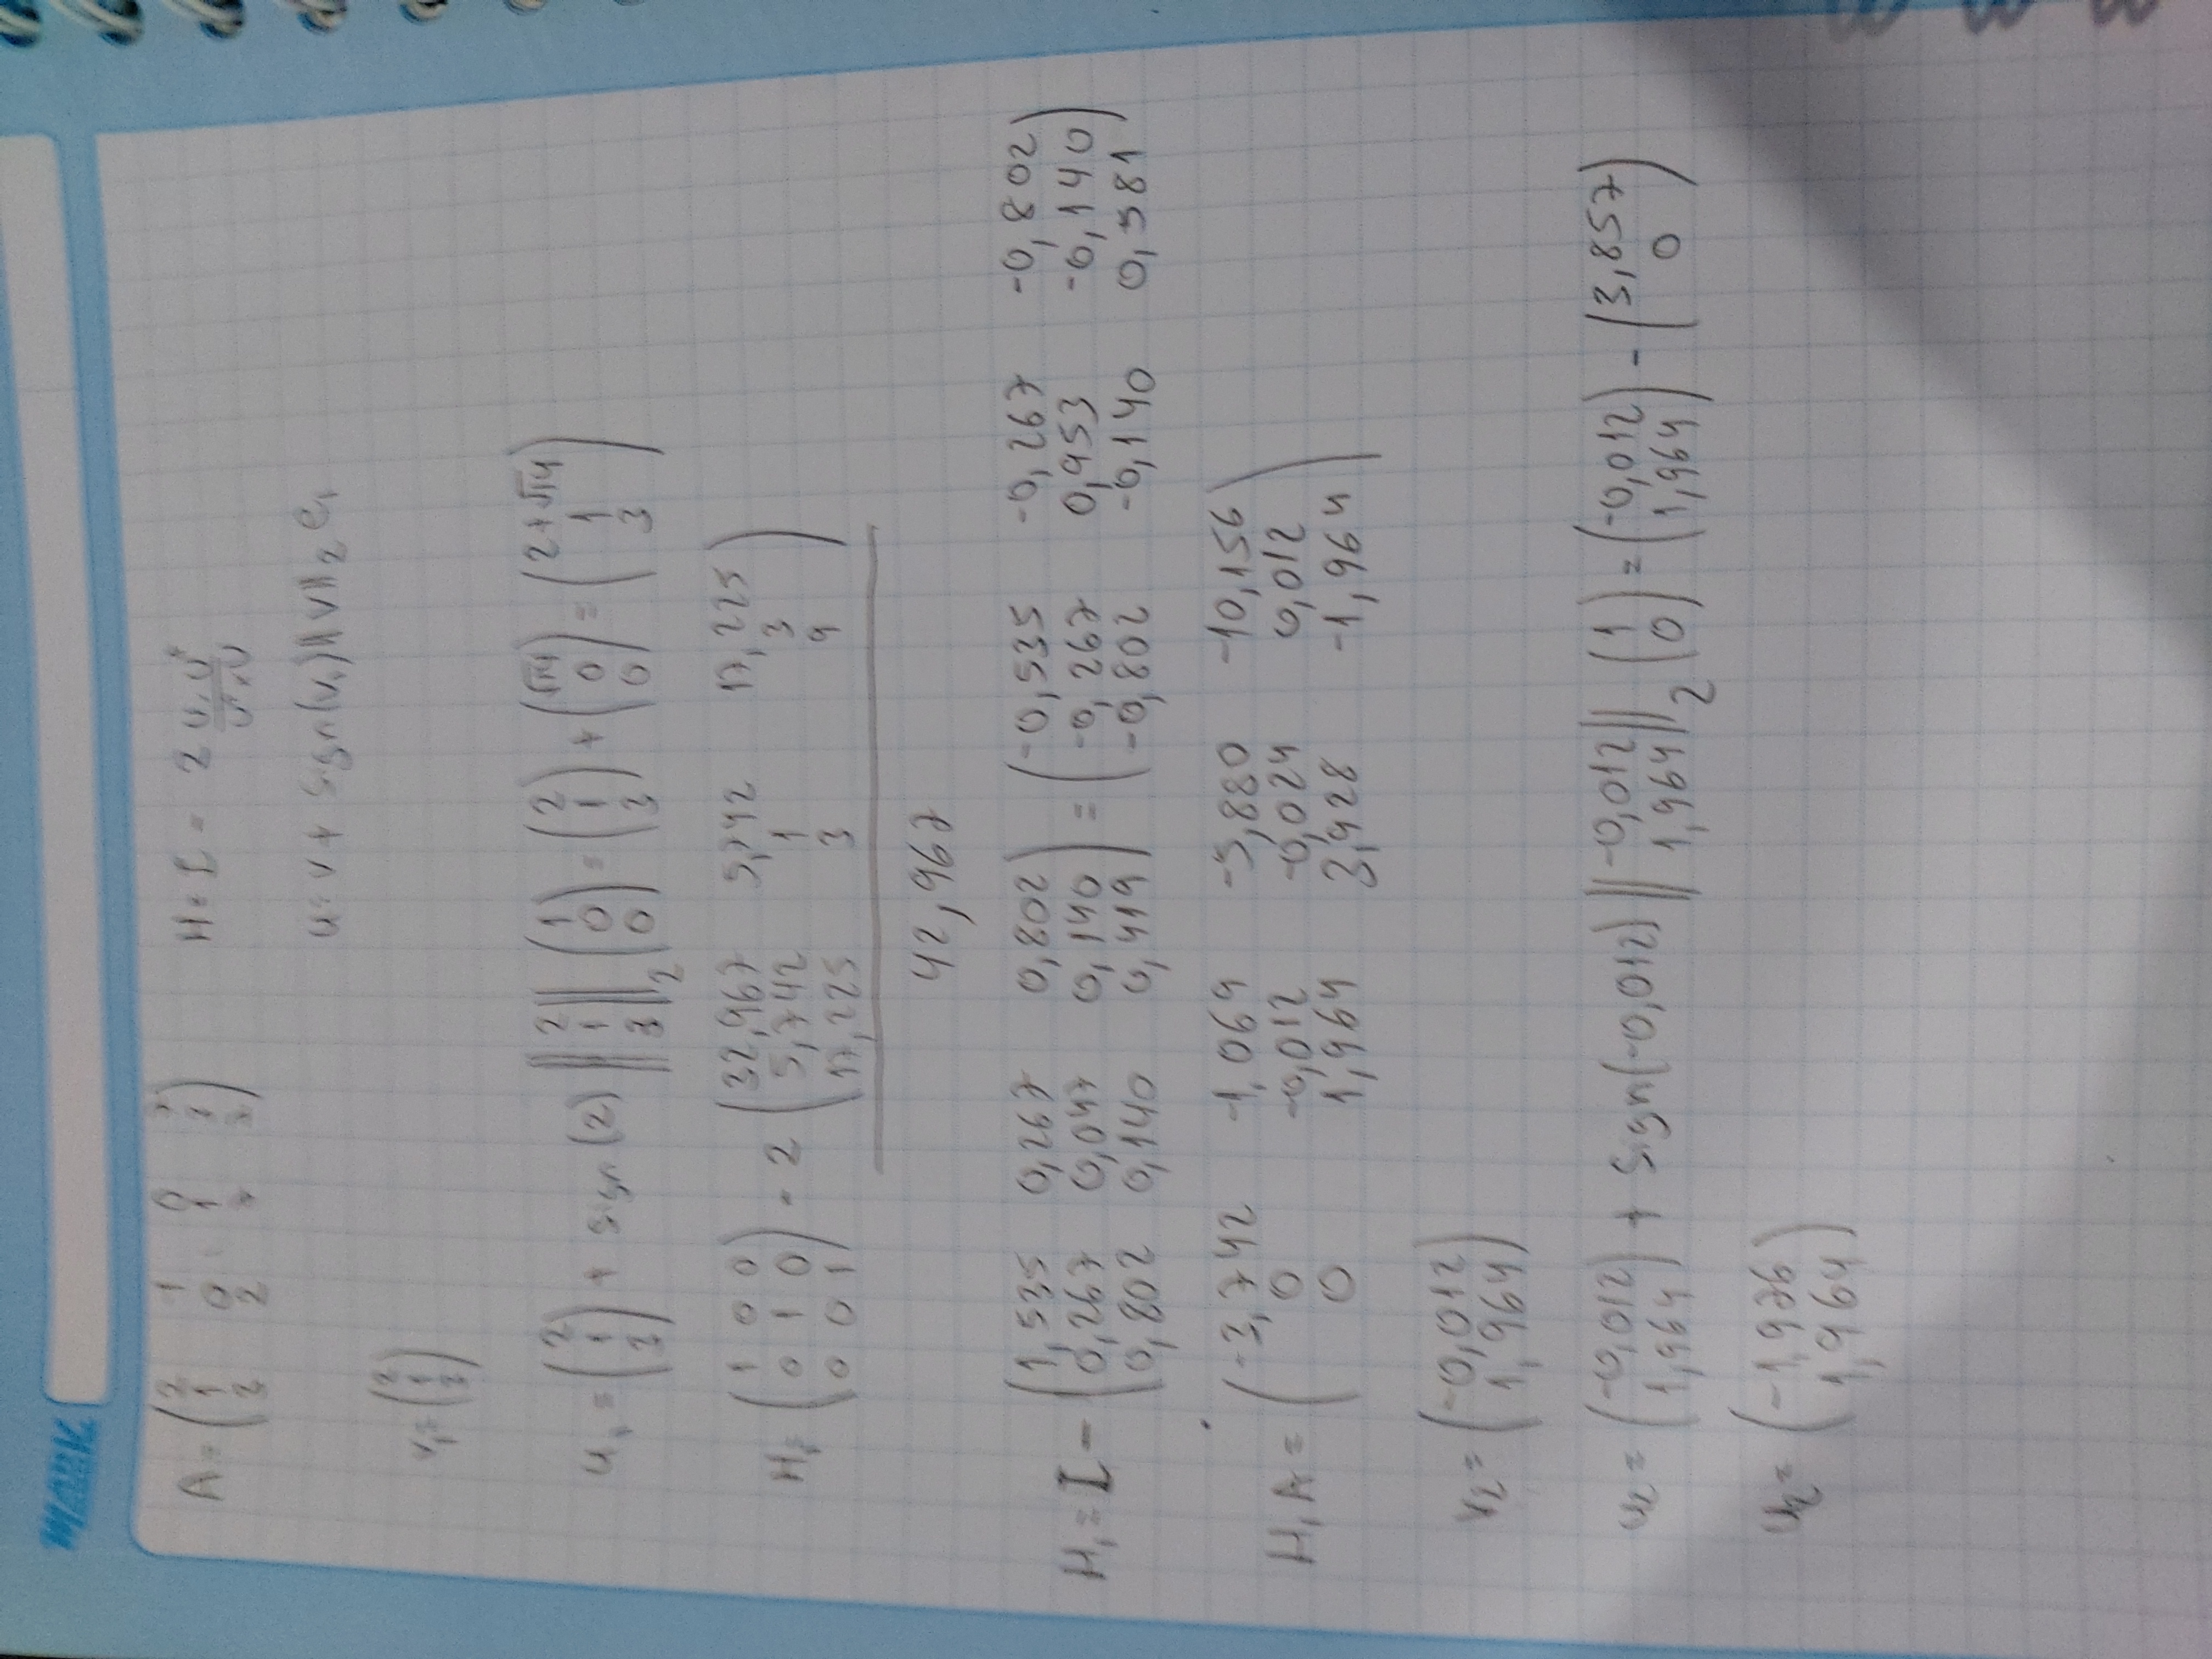 MARK
A = ( 2 1 0 7 ; 1 0 1 1 ; 3 2 7 7 ) H = I - 2 u · u^t / u^t × u
u = v + sign(v₁) ‖v‖₂ e₁
v₁ = ( 2 ; 1 ; 3 )
u₁ = ( 2 ; 1 ; 3 ) + sign(2) ‖ 2 ; 1 ; 3 ‖₂ ( 1 ; 0 ; 0 ) = ( 2 ; 1 ; 3 ) + ( √14 ; 0 ; 0 ) = ( 2+√14 ; 1 ; 3 )
H₁ = ( 1 0 0 ; 0 1 0 ; 0 0 1 ) - 2 ( 32,967 5,742 17,225 ; 5,742 1 3 ; 17,225 3 9 )
42,967
H₁ = I - ( 1,535 0,267 0,802 ; 0,267 0,047 0,140 ; 0,802 0,140 0,419 ) = ( -0,535 -0,267 -0,802 ; -0,267 0,953 -0,140 ; -0,802 -0,140 0,581 )
H₁A = ( -3,742 -1,069 -5,880 -10,156 ; 0 -0,012 -0,024 0,012 ; 0 1,964 3,928 -1,964 )
v₂ = ( -0,012 ; 1,964 )
u₂ = ( -0,012 ; 1,964 ) + sign(-0,012) ‖ -0,012 ; 1,964 ‖₂ ( 1 ; 0 ) = ( -0,012 ; 1,964 ) - ( 3,857 ; 0 )
u₂ = ( -1,976 ; 1,964 )